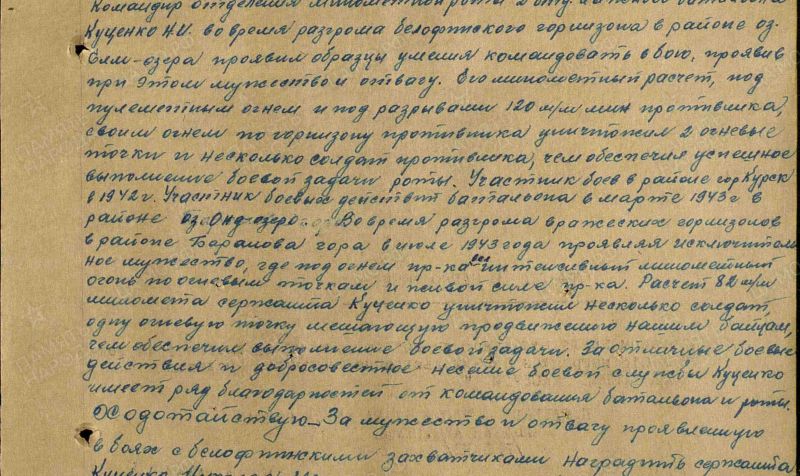 Командир отделения минометной роты 2 отд.
Куценко Н.И. во время разгрома белофинского горнизона в районе оз.
Елм-озера проявил образцы умения командовать в бою, проявив
при этом мужество и отвагу. Его минометный расчет, под
пулеметным огнем и под разрывами 120 м/м мин противника,
своим огнем по горнизону противника уничтожил 2 огневые
точки и несколько солдат противника, чем обеспечил успешное
выполнение боевой задачи роты. Участник боев в районе гор Курск
в 1942 г. Участник боевых действий батальона в марте 1943 г в
районе оз. Ондозеро. Во время разгрома вражеских горнизонов
в районе Баранова гора в июле 1943 года проявляя исключитель
ное мужество, где под огнем пр-ка вел интенсивный минометный
огонь по огневым точкам и живой силе пр-ка. Расчет 82 м/м
миномета сержанта Куценко уничтожил несколько солдат,
одну огневую точку мешающую продвижению нашим бойцам,
чем обеспечил выполнение боевой задачи. За отличные боевые
действия и добросовестное несение боевой службы Куценко
имеет ряд благодарностей от командования батальона и роты.
Ходотайствую - За мужество и отвагу проявленную
в боях с белофинскими захватчиками наградить сержанта
Куценко